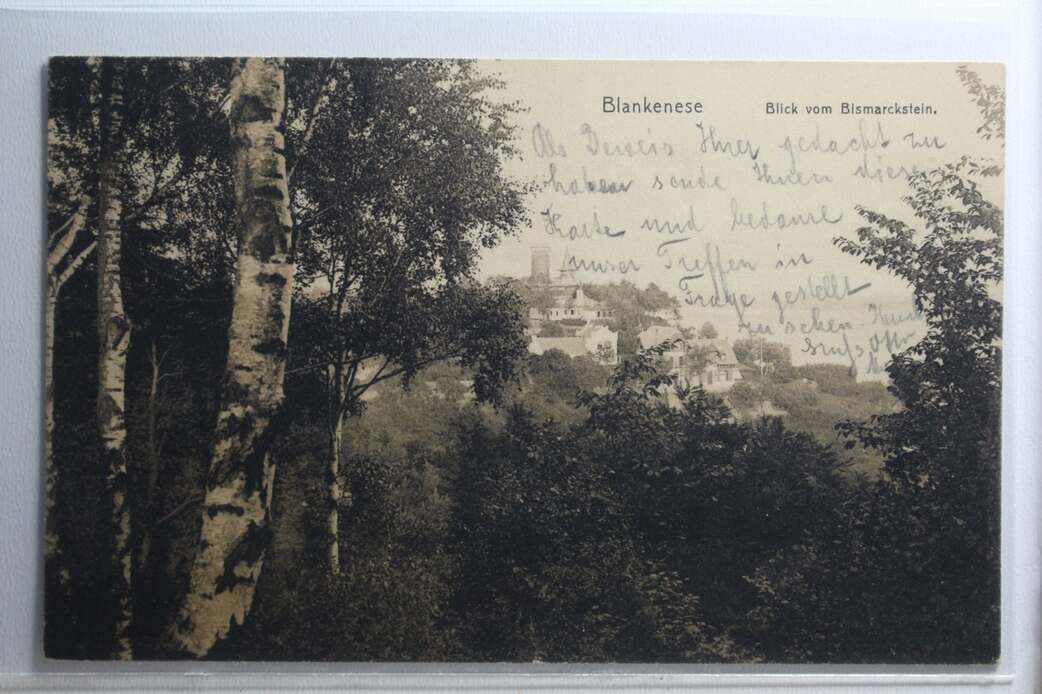 Blankenese Blick vom Bismarckstein.
Als Beweis Ihrer gedacht zu
haben sende Ihnen diese
Karte und bedaure
unser Treffen in
Frage gestellt
zu sehen.
Gruß Otto